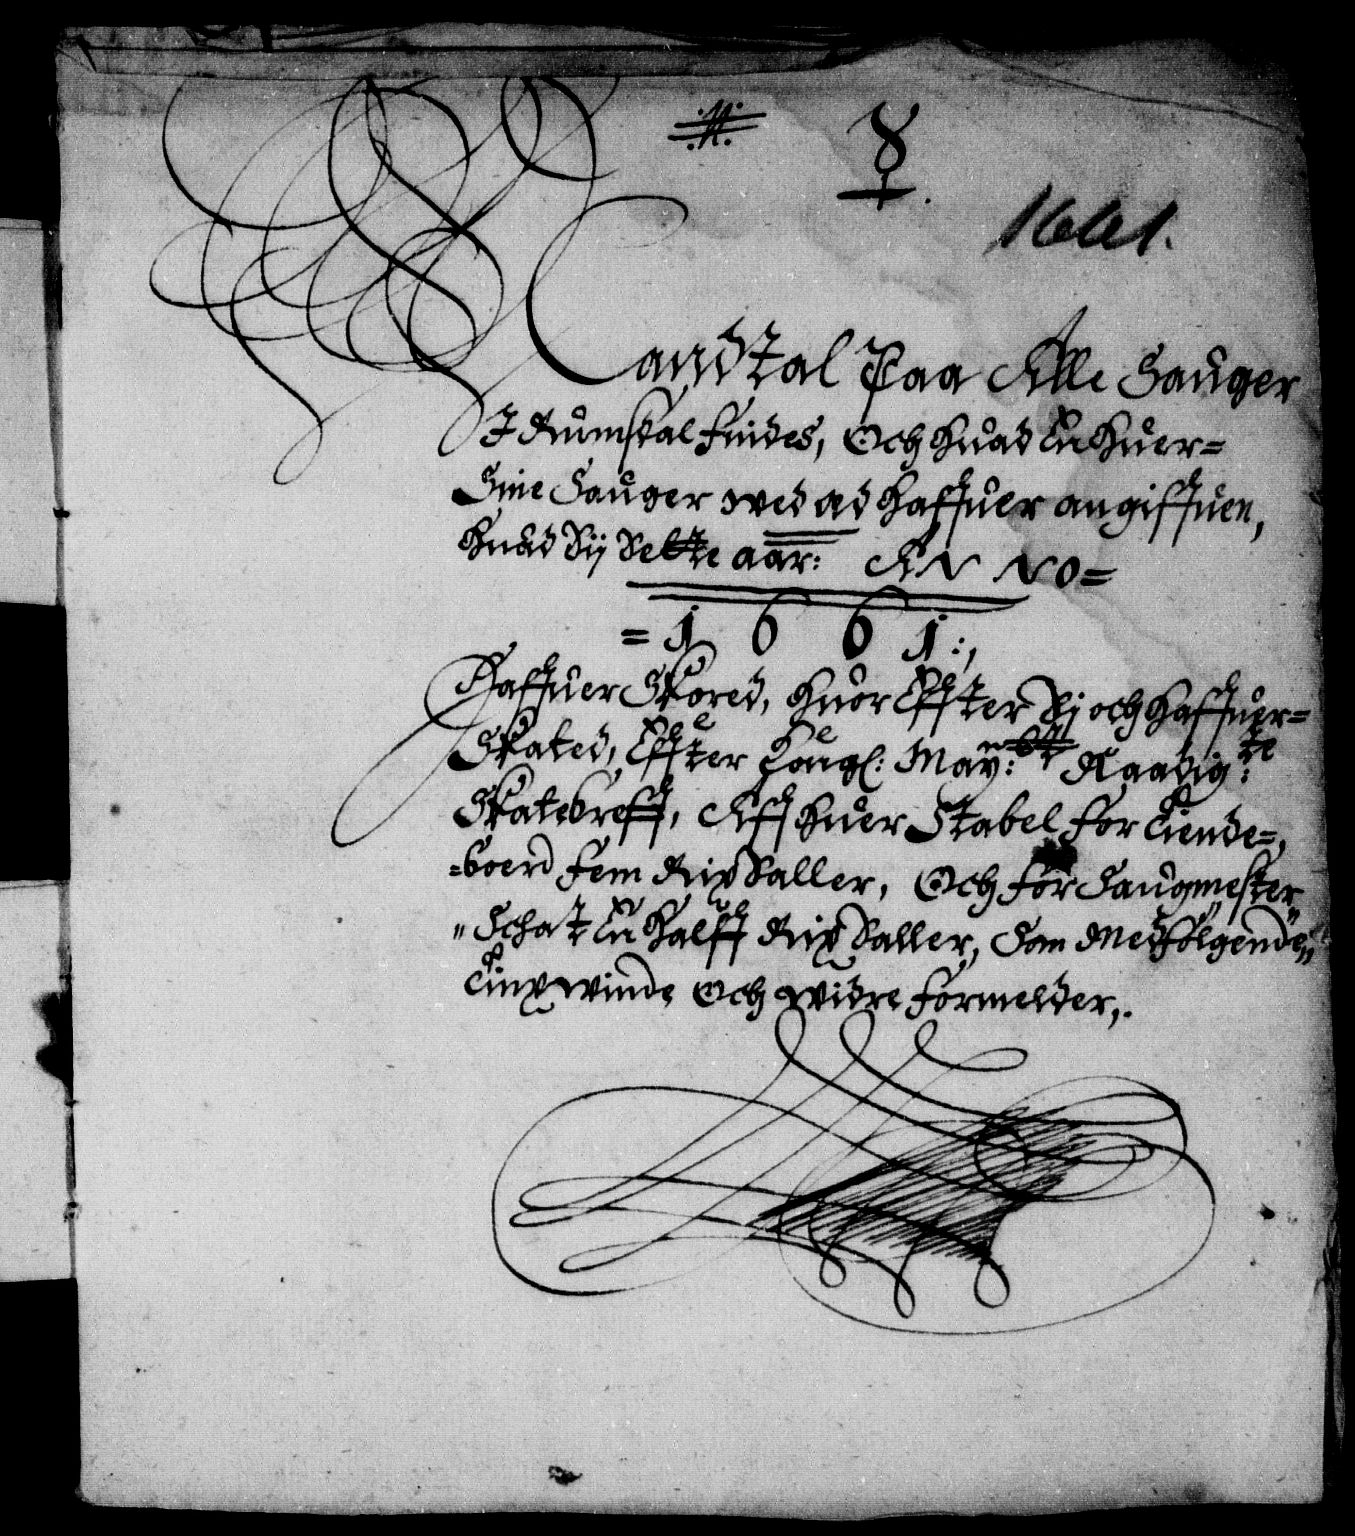 N 8.
1661.
Mandtal Paa Alle Sauger
I Rumsdal findes, Och huad en huer=
Sine Sauger wed ed haffuer angiffuen,
huad dij dette aar: ANNO=
=1661:,
Haffuer Skored, huor Effter dj och haffuer=
Skated, Effter Kongl: May: Naadig:te
Skatebreff, Aff huer Stabel for tiende=,
=boerd fem Rix daller, Och for Saugmester„
„Schat en halff Rix daller, Som Medfølgende„
tingxwinde Och widre formelder,.